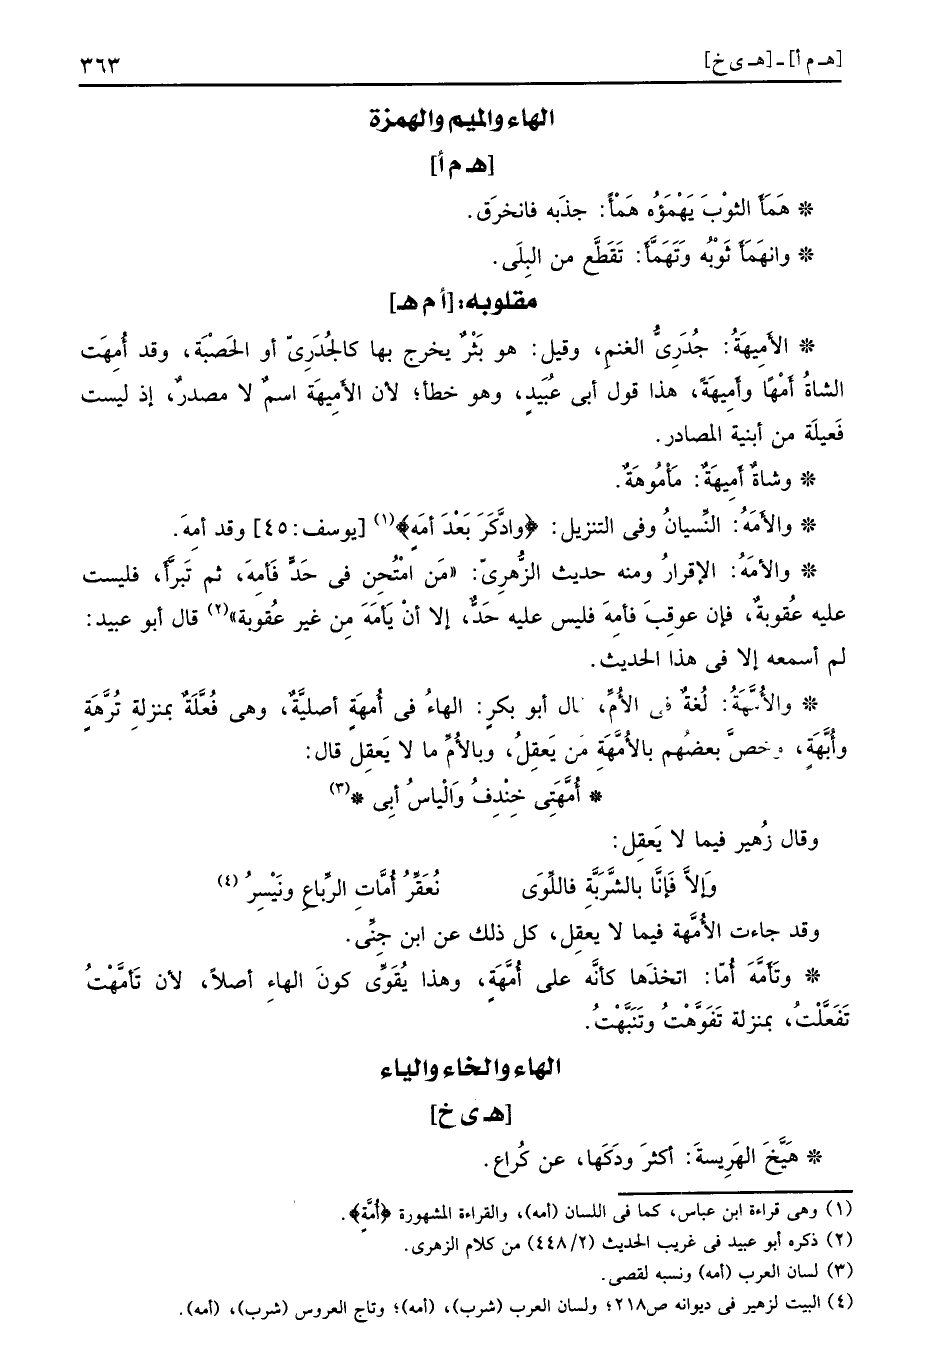 [هـ م أ] - [هـ ى خ]
٣٦٣
الهاء والميم والهمزة
[هـ م أ]
* هَمَأَ الثوْبَ يَهْمَؤُه هَمْأً: جذَبه فانخرَق.
* وانهَمَأَ ثَوْبُه وَتَهَمَّأَ: تَقَطَّع من البِلَى.
مقلوبه: [أ م هـ]
* الأَمِيهَةُ: جُدَرِىُّ الغنمِ، وقيل: هو بَثْرٌ يخرج بها كالجُدَرِىّ أو الحَصْبَة، وقد أُمِهَت
الشاةُ أَمْهًا وأَمِيهَةً، هذا قول أبى عُبَيدٍ، وهو خطأ؛ لأن الأمِيهَة اسمٌ لا مصدرٌ، إذ ليست
فَعيلَة من أبنية المصادر.
* وشاةٌ أَمِيهَةٌ: مَأْمُوهَةٌ.
* والأمَهُ: النِّسيانُ وفى التنزيل: ﴿وادَّكَرَ بَعْدَ أمَهٍ﴾(١) [يوسف: ٤٥] وقد أمِهَ.
* والأمَهُ: الإقرارُ ومنه حديث الزُّهرىّ: «مَن امْتُحِن فى حَدٍّ فَأمِهَ، ثم تَبرَّأَ، فليست
عليه عُقوبةٌ، فإن عوقِبَ فأمِهَ فليس عليه حَدٌّ، إلا أنْ يَأمَهَ مِن غير عُقوبة»(٢) قال أبو عبيد:
لم أسمعه إلا فى هذا الحديث.
* والأُمَّهَةُ: لُغةٌ فى الأُمِّ، قال أبو بكرٍ: الهاءُ فى أُمهَةٍ أصليَّةٌ، وهى فُعَّلَةٌ بمنزلةِ تُرَّهَةٍ
وأُبَّهَةٍ، وخصَّ بعضُهم بالأُمَّهَةِ مَن يَعقلُ، وبالأُمِّ ما لا يَعقل قال:
* أُمَّهَتِى خِنْدِفُ وَالْياسُ أبى *(٣)
وقال زُهير فيما لا يَعقِل:
وَإلاَّ فَإنَّا بالشَّرَبَّةِ فاللِّوَى نُعَقِّرُ أُمَّاتِ الرِّباعِ ونَيْسِرُ (٤)
وقد جاءت الأُمَّهة فيما لا يعقل، كل ذلك عن ابن جِنِّى.
* وتَأمَّهَ أُمّا: اتخذَها كأنَّه على أُمَّهَةٍ، وهذا يُقَوِّى كونَ الهاءِ أصلاً، لأن تَأمَّهْتُ
تَفَعَّلْت، بمنزلة تَفَوَّهْتُ وتَنَبَّهْتُ.
الهاء والخاء والياء
[هـ ى خ]
* هَيَّخَ الهَرِيسةَ: أكثرَ ودَكَها، عن كُراع.
(١) وهى قراءة ابن عباس، كما فى اللسان (أمه)، والقراءة المشهورة ﴿أُمَّةٍ﴾.
(٢) ذكره أبو عبيد فى غريب الحديث (٤٤٨/٢) من كلام الزهرى.
(٣) لسان العرب (أمه) ونسبه لقصى.
(٤) البيت لزهير فى ديوانه ص٢١٨؛ ولسان العرب (شرب)، (أمه)؛ وتاج العروس (شرب)، (أمه).